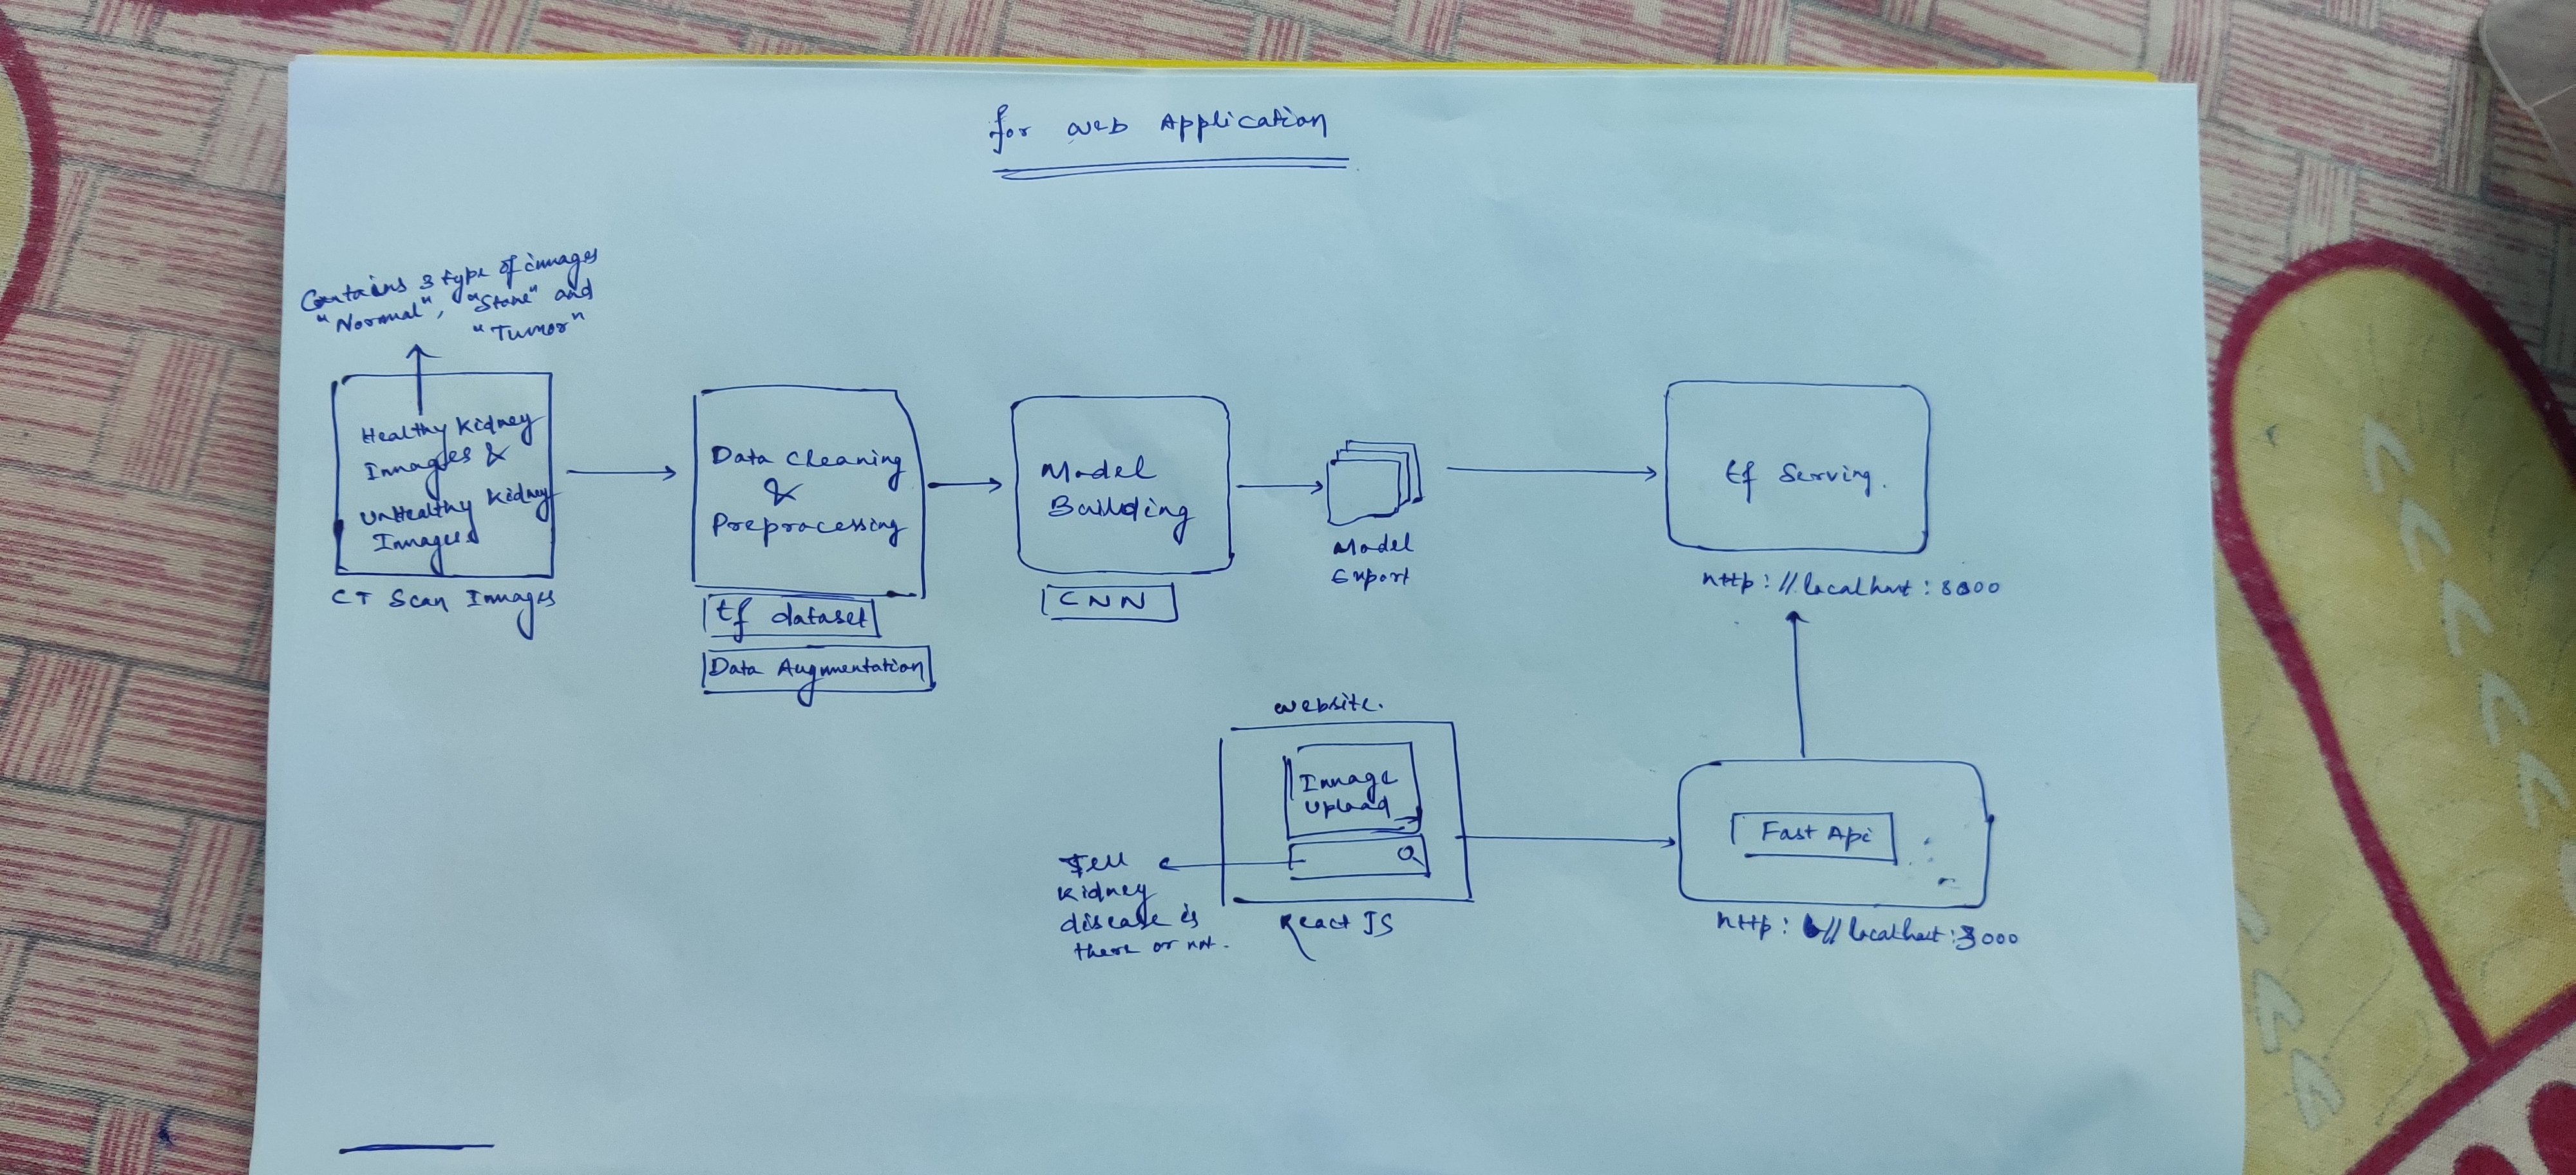 for web Application
Contains 3 type of images
"Normal", "Stone" and
"Tumor"
Healthy Kidney
Images &
UnHealthy Kidney
Images
CT Scan Images
Data Cleaning
&
Preprocessing
tf dataset
Data Augmentation
Model
Building
CNN
Model
Export
tf Serving.
http://localhost:8000
website.
Image
Upload
Tell
Kidney
disease is
there or not.
React JS
Fast Api
http://localhost:3000